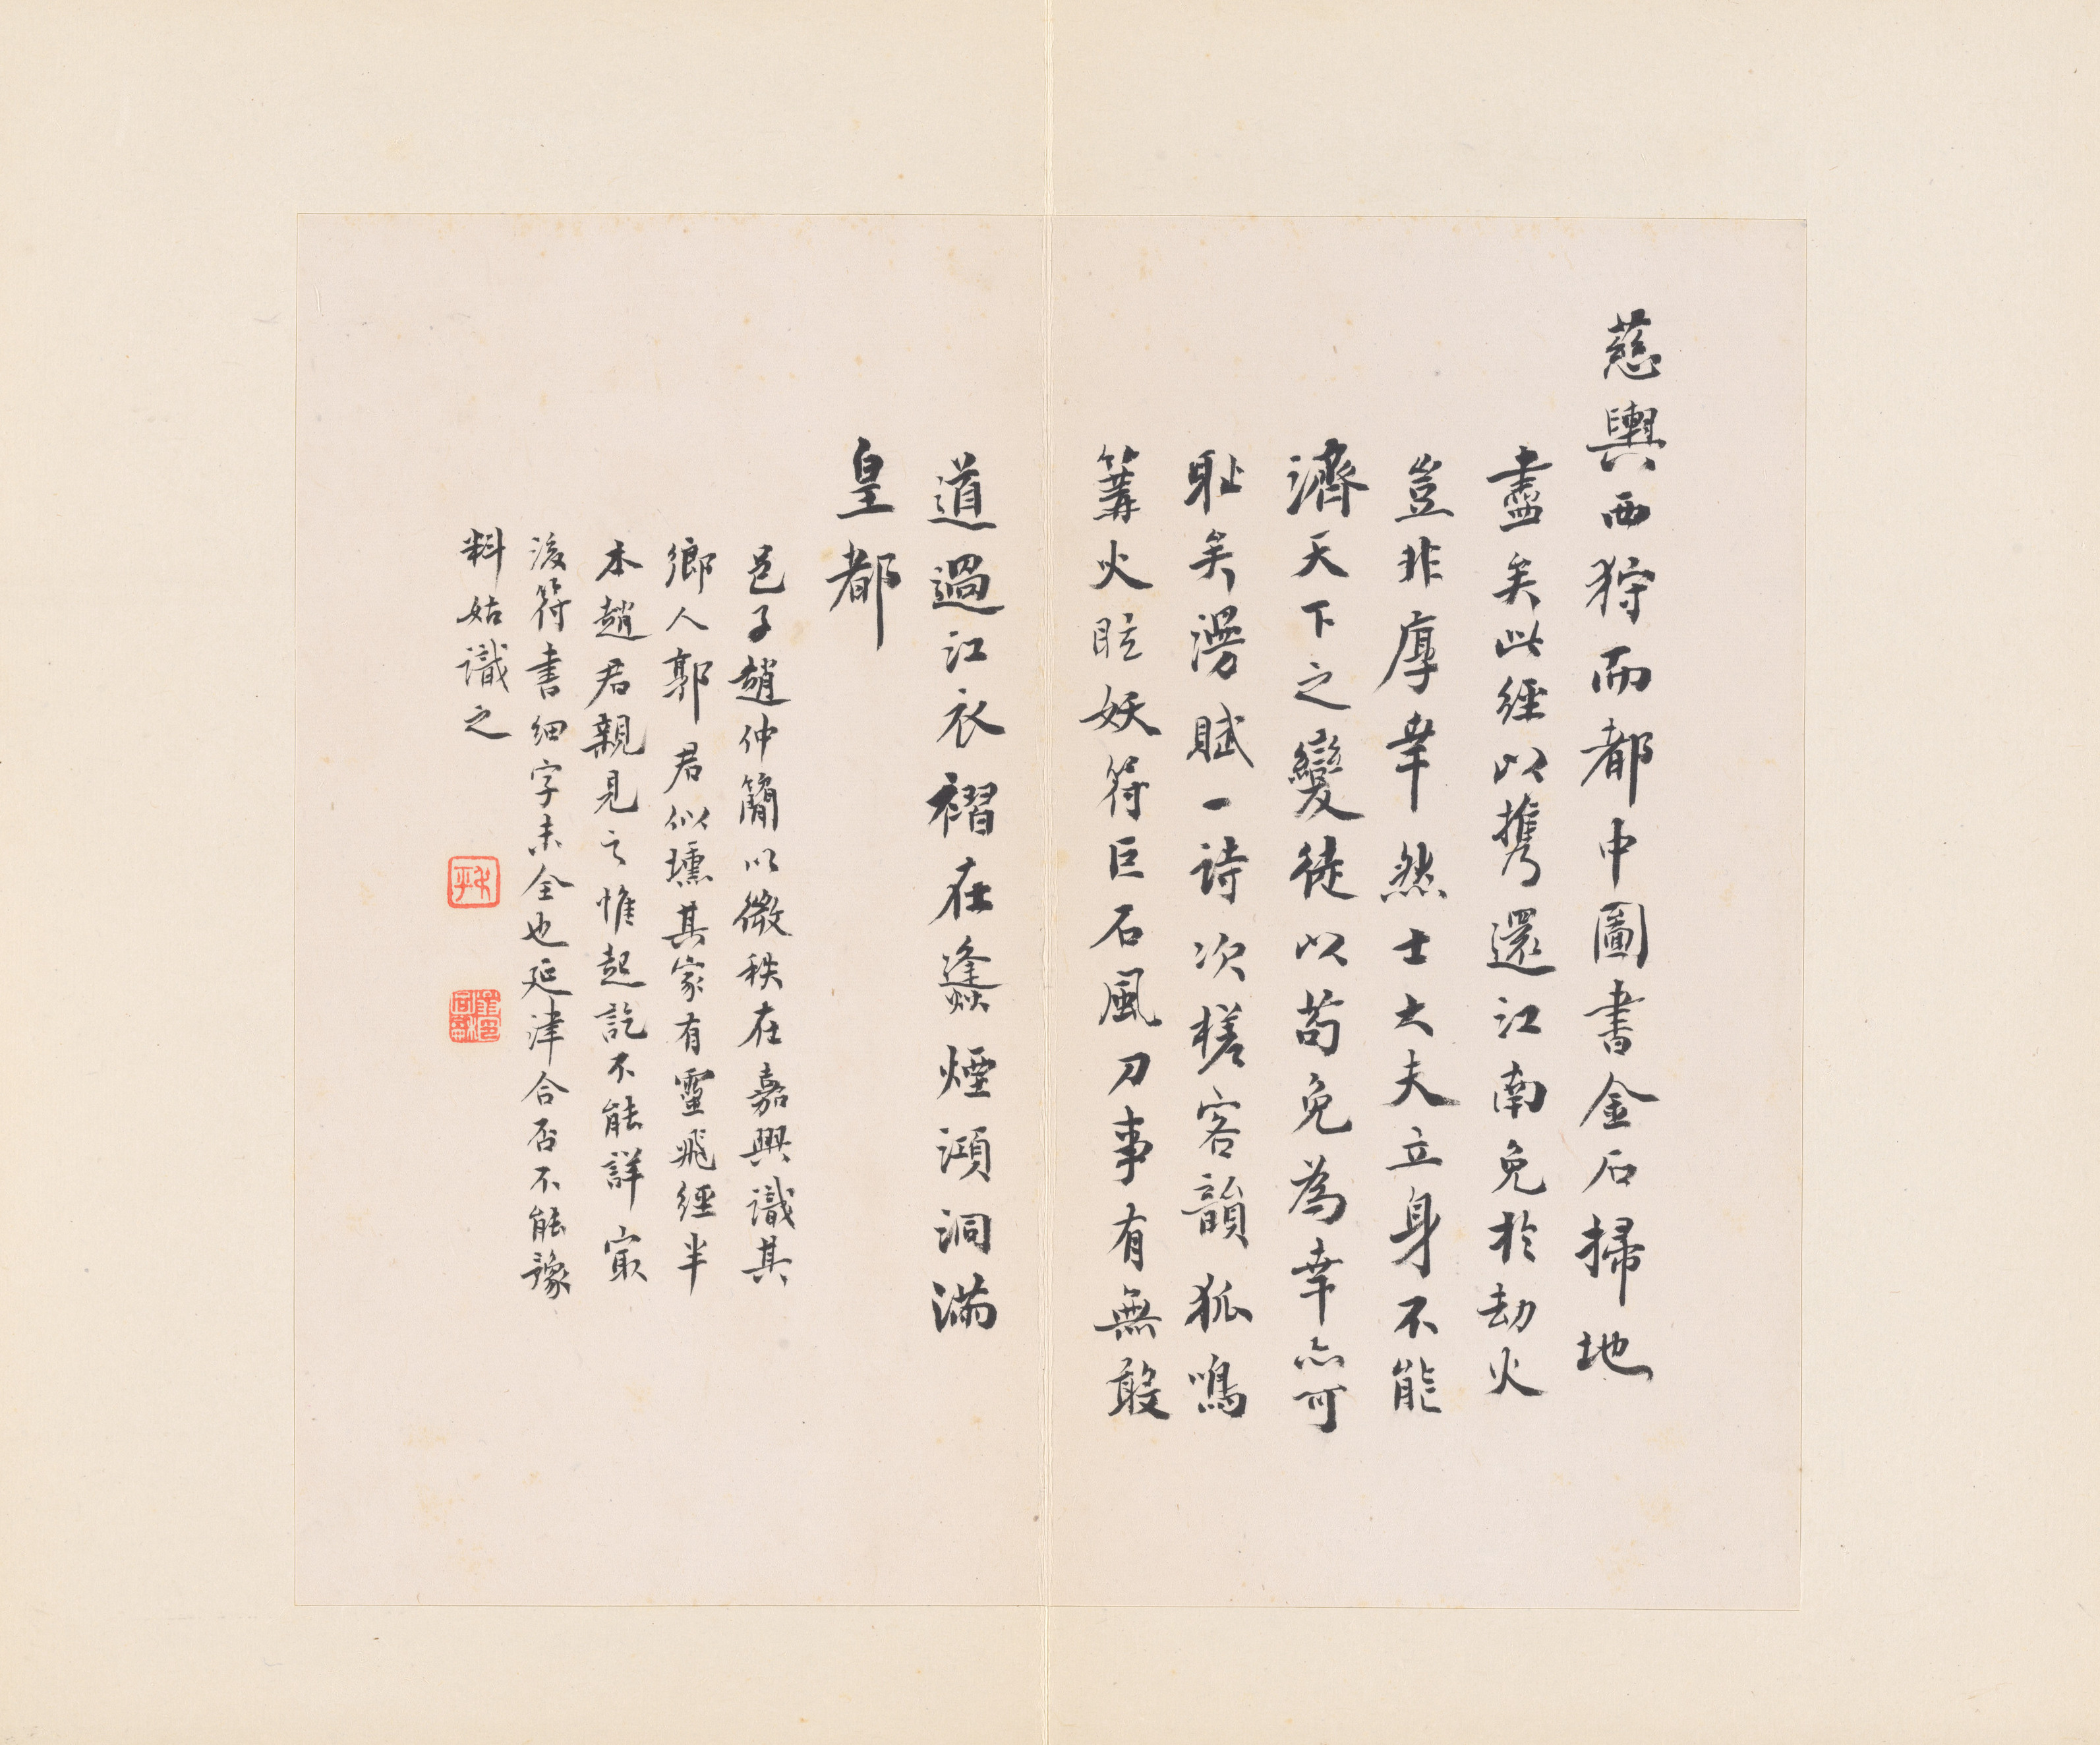 慈輿西狩而都中圖書金石掃地
盡矣此經以攜還江南免於劫火
豈非厚幸然士大夫立身不能
濟天下之變徒以苟免為幸亦可
恥矣漫賦一詩次槎客韻狐鳴
篝火眩妖符巨石風刀事有無敢
道過江衣褶在蓬蓬煙澒洞滿
皇都
邑子趙仲簡以微秩在嘉興識其
鄉人郭君似壎其家有靈飛經半
本趙君親見之惟起訖不能詳寂
後符書細字未全也延津合否不能豫
料姑識之